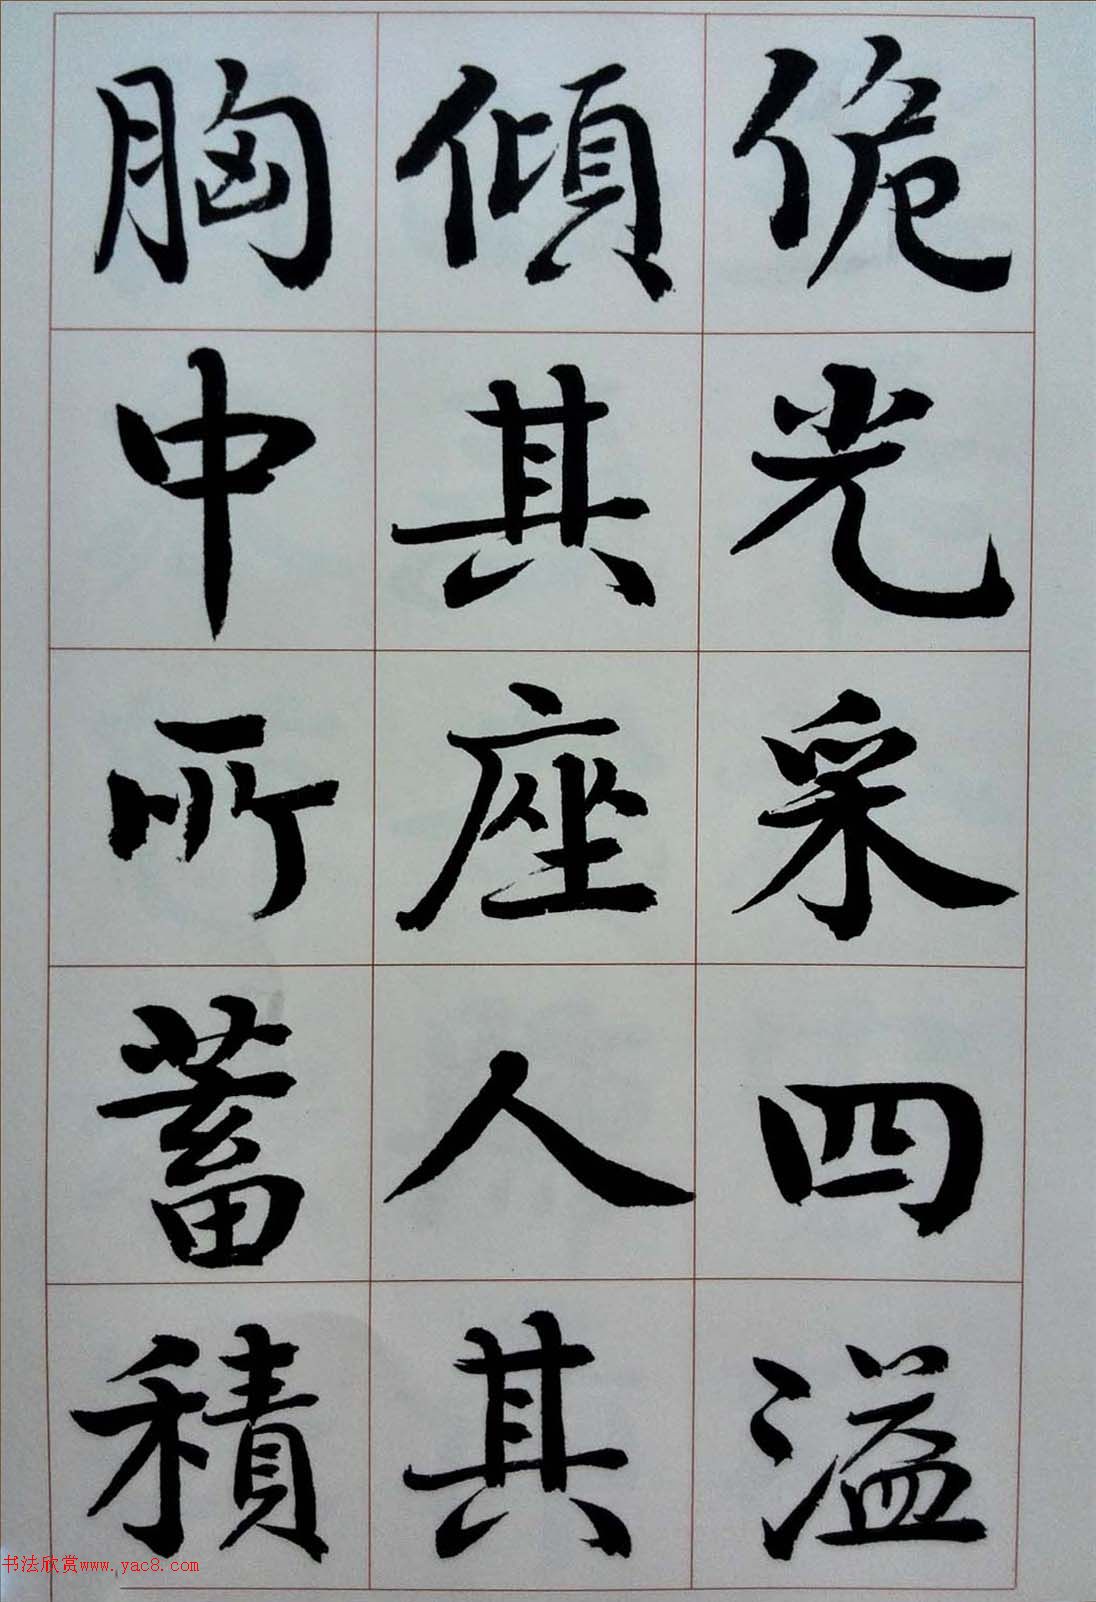 佹光采四溢
傾其座人其
胸中所蓄積
书法欣赏www.yac8.com